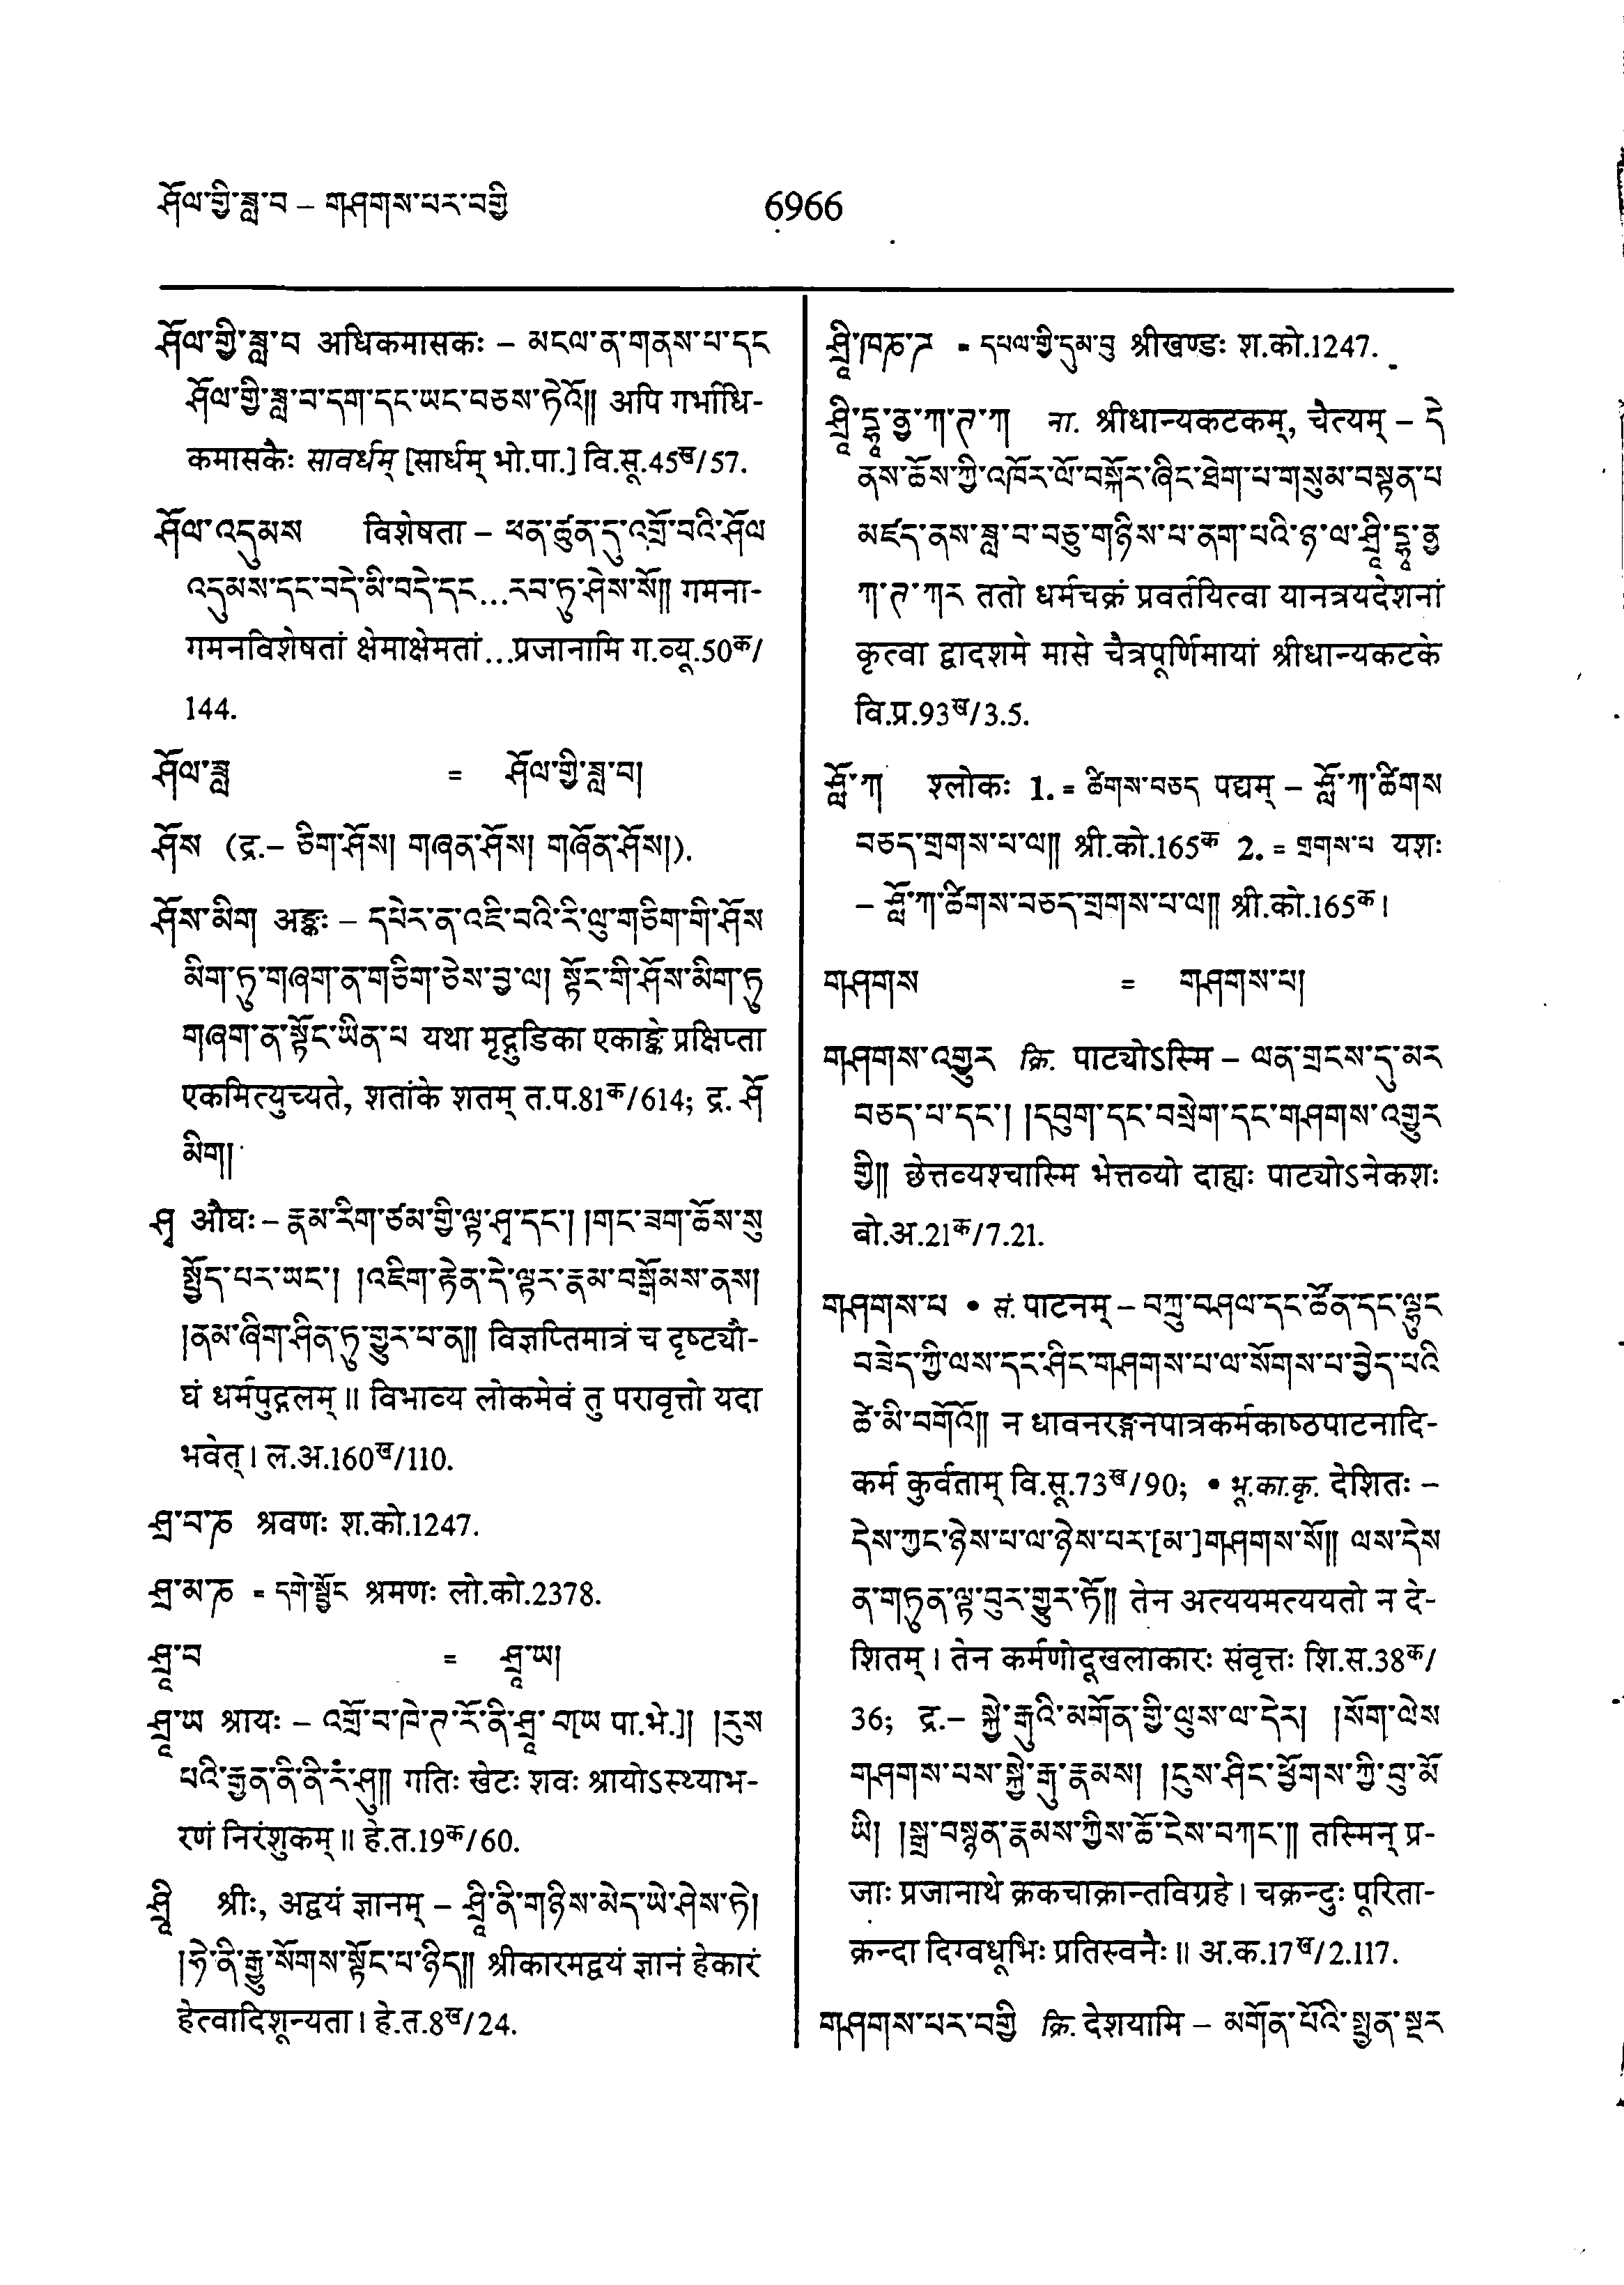 ཤོལ་གྱི་ཟླ་བ – གཤགས་པར་བགྱི
6966
ཤོལ་གྱི་ཟླ་བ अधिकमासकः – མངལ་ན་གནས་པ་དང
ཤོལ་གྱི་ཟླ་བ་དག་དང་ཡང་བཅས་ཏེའོ།། अपि गर्भाधि-
कमासकैः सावर्धम् [सार्धम् भो.पा.] वि.सू.45ख/57.
ཤོལ་འདུམས विशेषता – ཕན་ཚུན་དུ་འགྲོ་བའི་ཤོལ
འདུམས་དང་བདེ་མི་བདེ་དང...རབ་ཏུ་ཤེས་སོ།། गमना-
गमनविशेषतां क्षेमाक्षेमतां...प्रजानामि ग.व्यू.50क/
144.
ཤོལ་ཟླ = ཤོལ་གྱི་ཟླ་བ།
ཤོས (द्र.– ཅིག་ཤོས། གཞན་ཤོས། གཞོན་ཤོས།).
ཤོས་མིག अङ्कः – དཔེར་ན་འཇི་བའི་རི་ལུ་གཅིག་གི་ཤོས
མིག་ཏུ་གཞག་ན་གཅིག་ཅེས་བྱ་ལ། སྟོང་གི་ཤོས་མིག་ཏུ
གཞག་ན་སྟོང་ཡིན་པ यथा मृद्गुडिका एकाङ्के प्रक्षिप्ता
एकमित्युच्यते, शतांके शतम् त.प.81क/614; द्र. ཤོ
མིག།
ཤྲྀ औघः – རྣམ་རིག་ཙམ་གྱི་ལྟ་ཤྲྀ་དང་། །གང་ཟག་ཆོས་སུ
སྤྱོད་པར་ཡང་། །འཇིག་རྟེན་དེ་ལྟར་རྣམ་བསྒོམས་ནས།
།ནམ་ཞིག་ཤིན་ཏུ་གྱུར་པ་ན།། विज्ञप्तिमात्रं च दृष्ट्यौ-
घं धर्मपुद्गलम् ॥ विभाव्य लोकमेवं तु परावृत्तो यदा
भवेत् । ल.अ.160ख/110.
ཤྲ་བ་ཎ श्रवणः श.को.1247.
ཤྲ་མ་ཎ = དགེ་སྦྱོང श्रमणः लो.को.2378.
ཤྲཱ་བ = ཤྲཱ་ཡ།
ཤྲཱ་ཡ श्रायः – འགྲོ་བ་ཁེ་ཊ་རོ་ནི་ཤྲཱ་བ[ཡ पा.भे.]། །རུས
པའི་རྒྱན་ནི་ནི་རཾ་ཤུ།། गतिः खेटः शवः श्रायोऽस्थ्याभ-
रणं निरंशुकम् ॥ हे.त.19क/60.
ཤྲཱི श्रीः, अद्वयं ज्ञानम् – ཤྲཱི་ནི་གཉིས་མེད་ཡེ་ཤེས་ཏེ།
།ཧེ་ནི་རྒྱུ་སོགས་སྟོང་པ་ཉིད།། श्रीकारमद्वयं ज्ञानं हेकारं
हेत्वादिशून्यता । हे.त.8ख/24.
ཤྲཱི་ཁཎ་ཌ = དཔལ་གྱི་དུམ་བུ श्रीखण्डः श.को.1247.
ཤྲཱི་དྷཱ་ནྱ་ཀ་ཊ་ཀ ना. श्रीधान्यकटकम्, चैत्यम् – དེ
ནས་ཆོས་ཀྱི་འཁོར་ལོ་བསྐོར་ཞིང་ཐེག་པ་གསུམ་བསྟན་པ
མཛད་ནས་ཟླ་བ་བཅུ་གཉིས་པ་ནག་པའི་ཉ་ལ་ཤྲཱི་དྷཱ་ནྱ
ཀ་ཊ་ཀར ततो धर्मचक्रं प्रवर्तयित्वा यानत्रयदेशनां
कृत्वा द्वादशमे मासे चैत्रपूर्णिमायां श्रीधान्यकटके
वि.प्र.93ख/3.5.
ཤློ་ཀ श्लोकः 1. = ཚིགས་བཅད पद्यम् – ཤློ་ཀ་ཚིགས
བཅད་གྲགས་པ་ལ།། श्री.को.165क 2. = གྲགས་པ यशः
– ཤློ་ཀ་ཚིགས་བཅད་གྲགས་པ་ལ།། श्री.को.165क ।
གཤགས = གཤགས་པ།
གཤགས་འགྱུར क्रि. पाट्योऽस्मि – ལན་གྲངས་དུ་མར
བཅད་པ་དང་། །དབུག་དང་བསྲེག་དང་གཤགས་འགྱུར
གྱི།། छेत्तव्यश्चास्मि भेत्तव्यो दाह्यः पाट्योऽनेकशः
बो.अ.21क/7.21.
གཤགས་པ • सं. पाटनम् – བཀྲུ་བཤལ་དང་ཚོན་དང་ལྷུང
བཟེད་ཀྱི་ལས་དང་ཤིང་གཤགས་པ་ལ་སོགས་པ་བྱེད་པའི
ཚེ་མི་བགོའོ།། न धावनरङ्गनपात्रकर्मकाष्ठपाटनादि-
कर्म कुर्वताम् वि.सू.73ख/90; • भू.का.कृ. देशितः –
དེས་ཀྱང་ཉེས་པ་ལ་ཉེས་པར་[མ་]གཤགས་སོ།། ལས་དེས
ན་གཏུན་ལྟ་བུར་གྱུར་ཏོ།། तेन अत्ययमत्ययतो न दे-
शितम् । तेन कर्मणोदूखलाकारः संवृत्तः शि.स.38क/
36; द्र.– སྐྱེ་རྒུའི་མགོན་གྱི་ལུས་ལ་དེར། །སོག་ལེས
གཤགས་པས་སྐྱེ་རྒུ་རྣམས། །ངུས་ཤིང་ཕྱོགས་ཀྱི་བུ་མོ
ཡི། །སྒྲ་བསྙན་རྣམས་ཀྱིས་ཆོ་ངེས་བཀང་།། तस्मिन् प्र-
जाः प्रजानाथे क्रकचाक्रान्तविग्रहे । चक्रन्दुः पूरिता-
क्रन्दा दिग्वधूभिः प्रतिस्वनैः ॥ अ.क.17ख/2.117.
གཤགས་པར་བགྱི क्रि. देशयामि – མགོན་པོའི་སྤྱན་སྔར